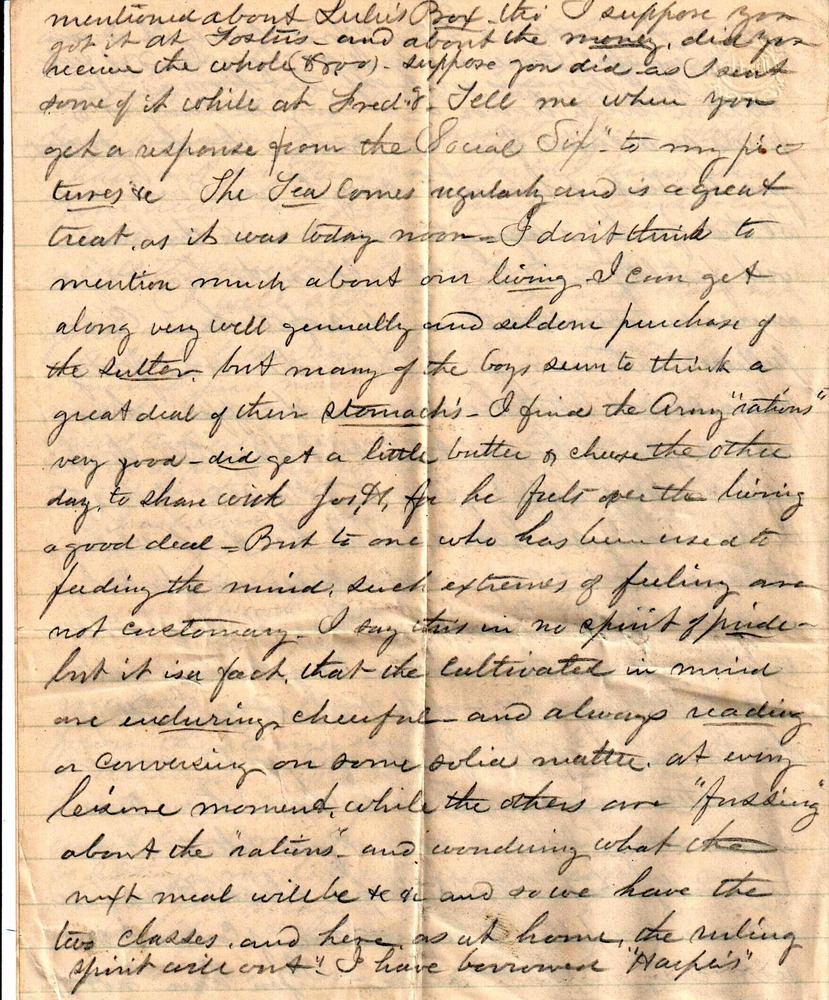 mentioned about Lulie's Box. tho' I suppose you
got it at Foster's - and about the money, did you
receive the whole - suppose you did as I sent
some of it while at Fred's. Tell me when you
get a response from the "Social Six" to my pic
tures &c The Tea comes regularly and is a great
treat, as it was today noon - I don't think to
mention much about our living. I can get
along very well generally and seldom purchase of
the sutler. but many of the boys seem to think a
great deal of their stomach's - I find the Army "rations"
very good - did get a little butter & cheese the other
day, to share with Jos. H, for he frets over the living
a good deal - But to one who has been used to
feeding the mind, such extremes of feeling are
not customary - I say this in no spirit of pride -
but it is a fact, that the cultivated in mind
are enduring, cheerful - and always reading
or conversing on some solid matter. at every
leisure moment, while the others are "fussing"
about the "rations" - and wondering what the
next meal will be &c &c and so we have the
two classes, and here, as at home, the ruling
spirit will out"! I have borrowed "Harper's"